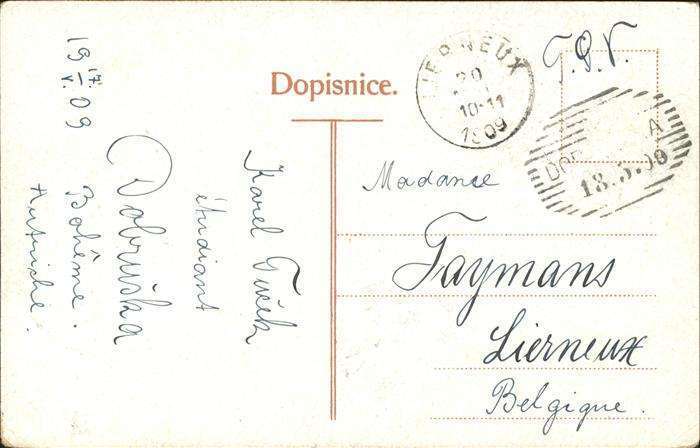 19 17/V. 09
Dopisnice.
T.S.V.
LIERNEUX
20
10-11
1909
DO A
18.5.09
Karel
étudiant
Dobruška
Bohême.
Autriche.
Madame
Taymans
Lierneux
Belgique.